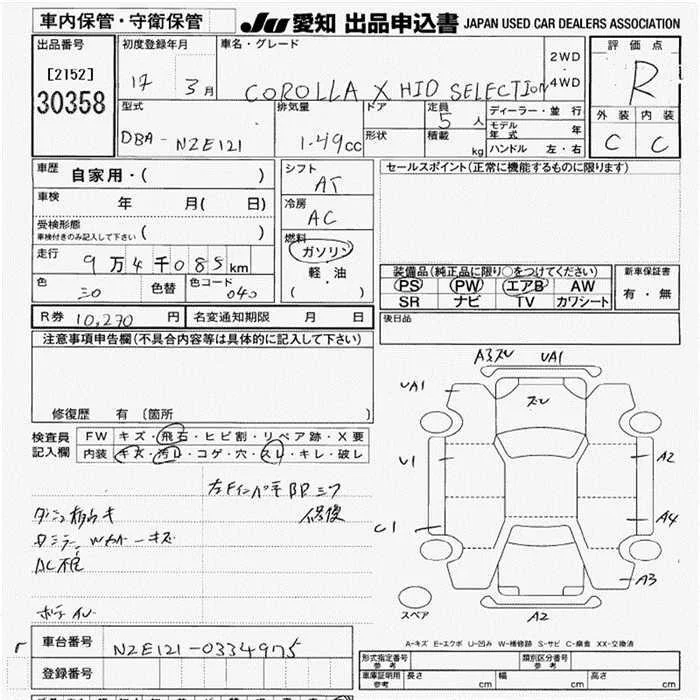 車内保管・守衛保管
JU 愛知 出品申込書 JAPAN USED CAR DEALERS ASSOCIATION
出品番号
[2152]
30358
初度登録年月
17 3月
車名・グレード
COROLLA X HID SELECTION
2WD
4WD
評価点
R
外装 内装
C C
型式
DBA-NZE121
排気量
1.49cc
ドア
形状
定員
5人
積載
kg
ディーラー・並行
モデル年式 年
ハンドル 左・右
車歴
自家用・( )
車検
年 月( 日)
受検形態
車検付きのみ記入して下さい ( )
走行
9万4千085km
色
色替
色コード
040
シフト
AT
冷房
AC
燃料
ガソリン
軽・油
( ・ )
セールスポイント(正常に機能するものに限ります)
装備品(純正品に限り○をつけてください)
PS PW エアB AW
SR ナビ TV カワシート
新車保証書
有・無
後日品
R券 10,270 円
名変通知期限 月 日
注意事項申告欄(不具合内容等は具体的に記入して下さい)
修復歴 有 〔箇所 〕
検査員
記入欄
FW キズ・飛石・ヒビ割・リペア跡・X要
内装 キズ・汚レ・コゲ・穴・スレ・キレ・破レ
修復
AC不良
A3ズレ UA1
UA1
ズレ
U1
A2
C1
A4
A3
スペア
A2
A-キズ E-エクボ U-凹み W-補修跡 S-サビ C-腐食 XX-交換済
車台番号
NZE121-0334975
登録番号
形式指定番号
参考
類別区分番号
参考
車庫証明用
参考
長さ cm
幅 cm
高さ cm